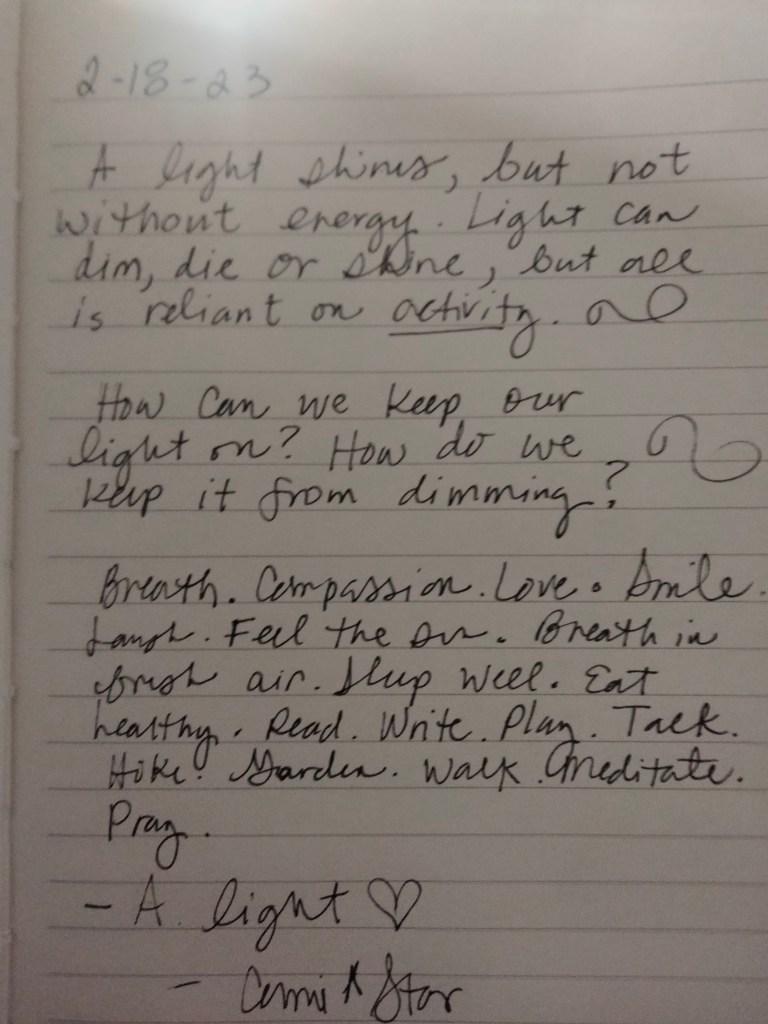 2-18-23
A light shines, but not
without energy. Light can
dim, die or shine, but all
is reliant on activity.
How can we keep our
light on? How do we
keep it from dimming?
Breath. Compassion. Love. Smile.
Laugh. Feel the sun. Breath in
fresh air. Sleep well. Eat
healthy. Read. Write. Play. Talk.
Hike. Garden. Walk. Meditate.
Pray.
- A light ♡
- Star